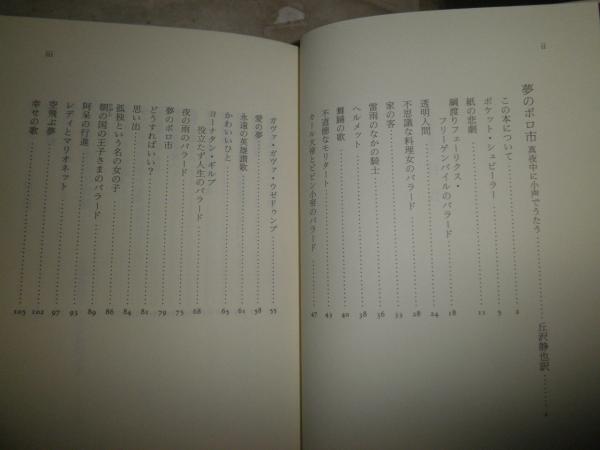 ii
夢のボロ市 真夜中に小声でうたう 丘沢静也訳
この本について 2
ポケット・シュピーラー 5
紙の悲劇 11
綱渡りフェーリクス・
フリーゲンバイルのバラード 18
透明人間 24
不思議な料理女のバラード 28
家の客 33
雷雨のなかの騎士 36
ヘルメット 38
の歌 40
不道徳なモリタート 43
カール大帝とピピン小君のバラード 47
iii
ガヴァ・ガヴァ・ウゼドゥンプ 55
愛の夢 58
永遠の英雄讃歌 61
かわいいひと 65
ヨーナタン・ギルプ
役立たず人生のバラード 68
夜の雨のバラード 75
夢のボロ市 79
どうすればいい? 81
思い出 84
孤独という名の女の子 86
朝の国の王子さまのバラード 89
阿呆の行進 93
レディとマリオネット 97
空飛ぶ夢 102
幸せの歌 105